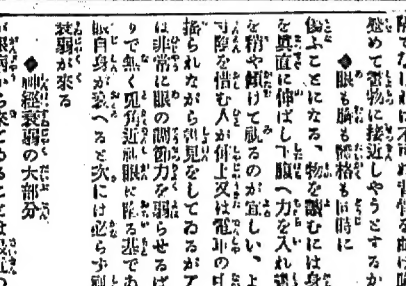 慰めて書物に接近しやうとするか
◆眼も脳も体格も同時に
傷ふことになる、物を読むには身
を真直に伸ばし下腹へ力を入れ
を稍や傾けて視るのが宜しい、よ
寸陰を惜む人が俥上又は電車の中
揺られながら見をしてゐるがア
は非常に眼の調節力を弱らせるば
りで無く兎角近視眼に陥る基であ
眼自身が衰へると次には必らず
衰弱が来る
◆神経衰弱の大部分
が眼病から来てゐることは最近の